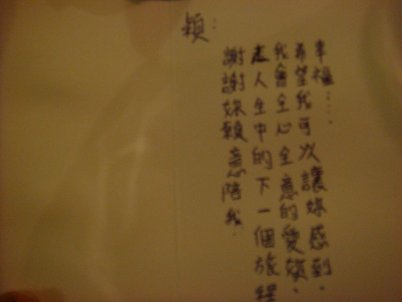 穎:
謝謝妳願意陪我.
走人生中的下一個旅程
我會全心全意的愛
希望我可以讓妳感到.
幸福....